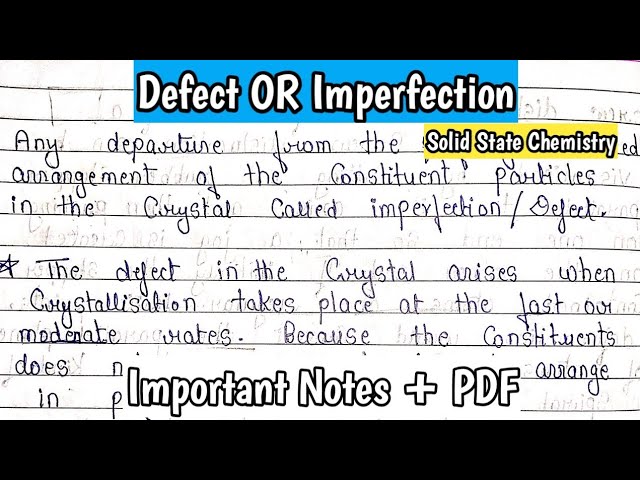 Defect OR Imperfection
Solid State Chemistry
Any departure from the ed
arrangement of the Constituent particles
in the Crystal Called imperfection / Defect.
* The defect in the Crystal arises when
Crystallisation takes place at the fast or
moderate rates. Because the Constituents
does arrange
in
Important Notes + PDF